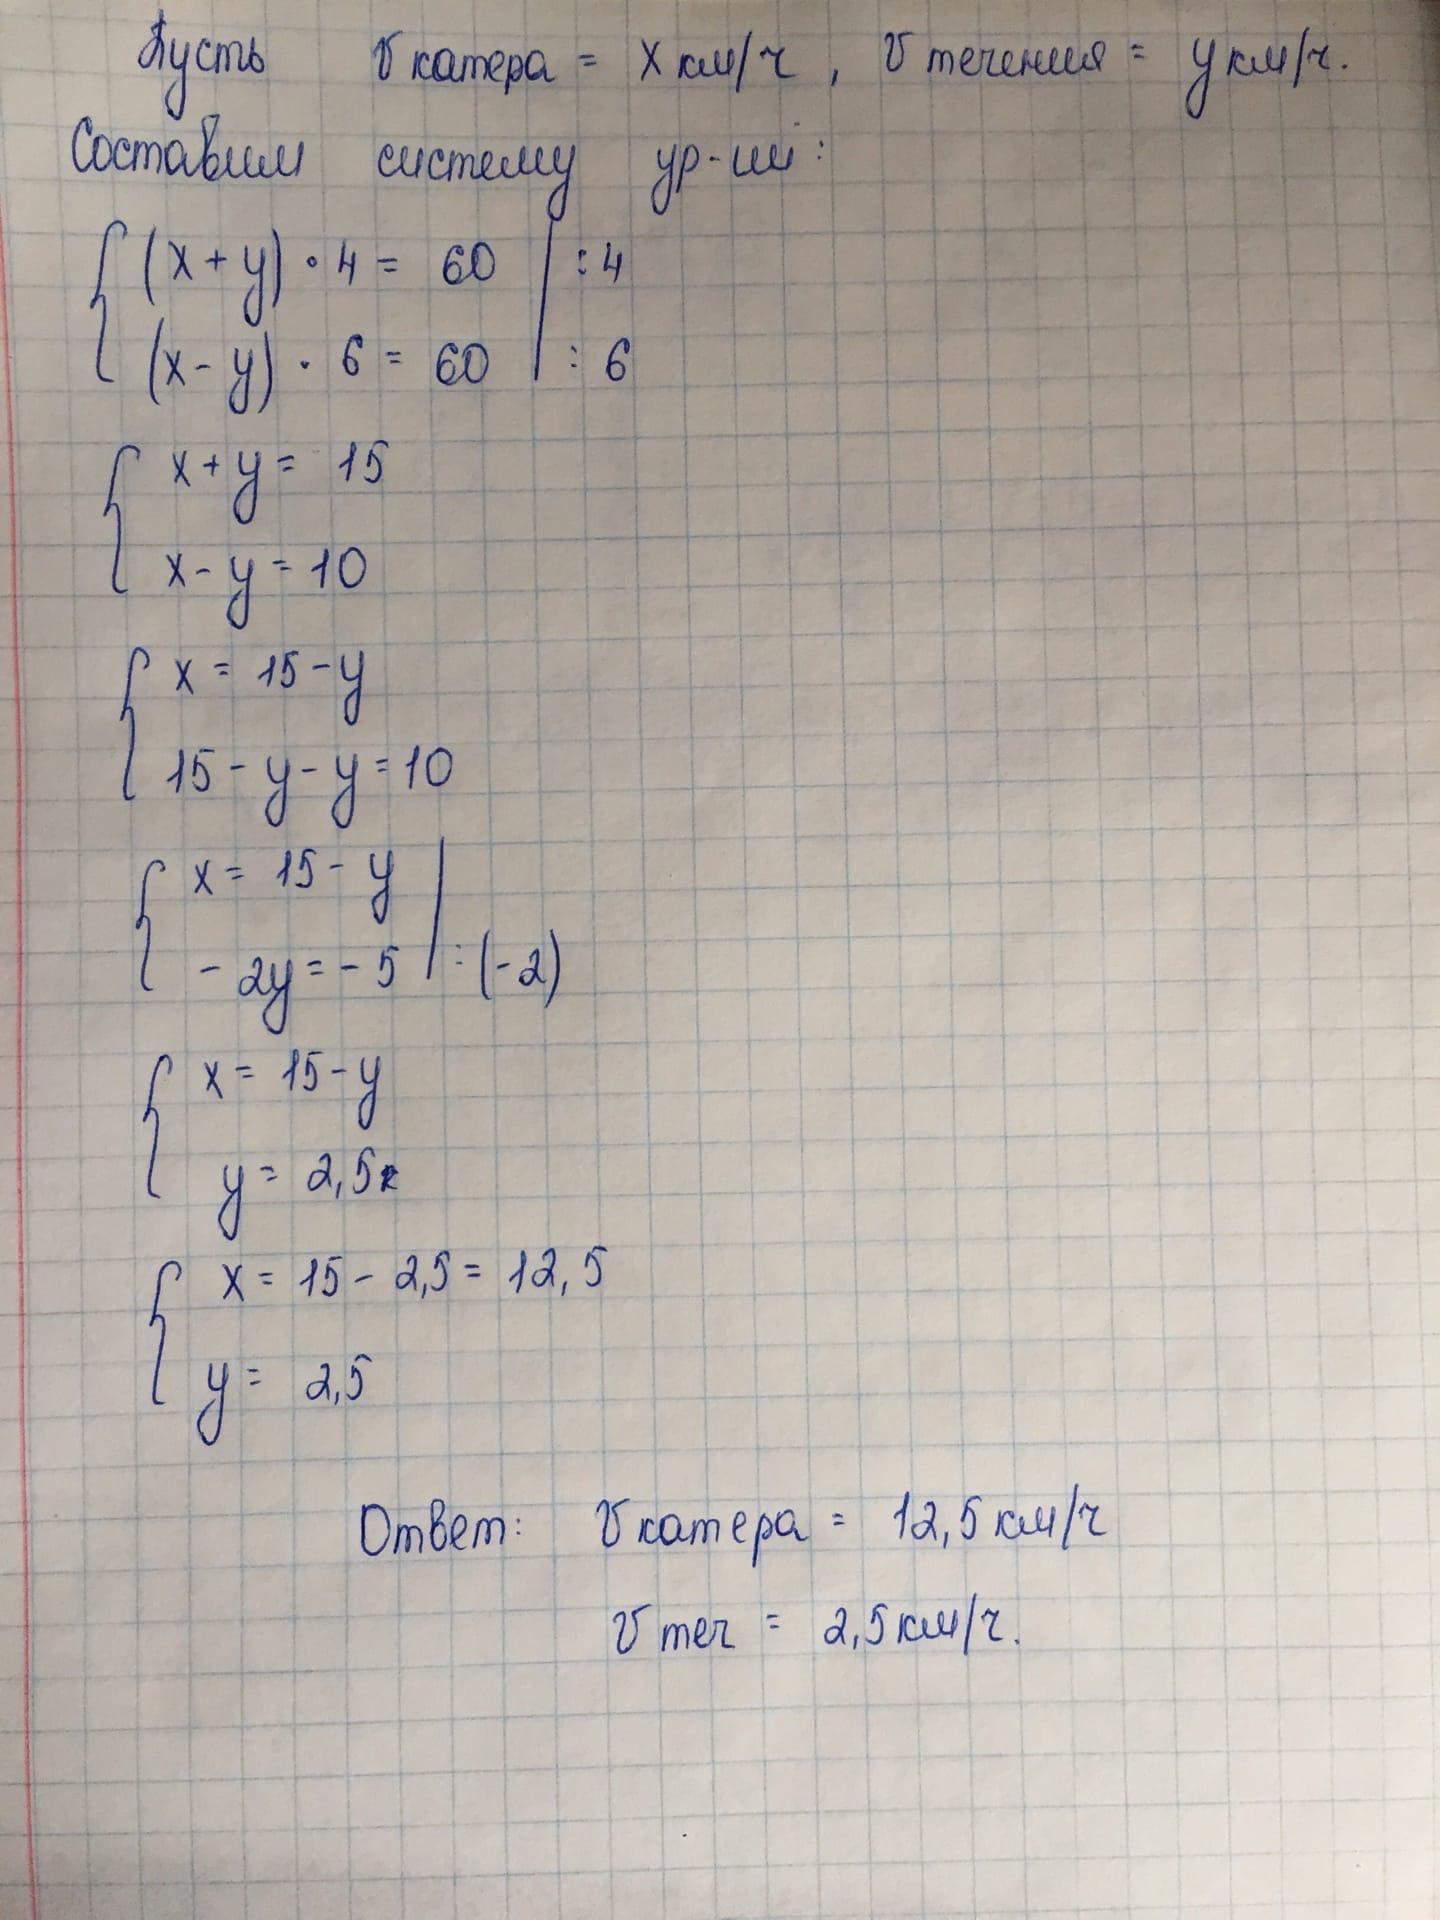 Пусть v катера = x км/ч, v течения = y км/ч.
Составим систему ур-ий:
{ (x+y) · 4 = 60 | :4
(x-y) · 6 = 60 | :6
{ x+y = 15
x-y = 10
{ x = 15-y
15-y-y = 10
{ x = 15-y
-2y = -5 | :(-2)
{ x = 15-y
y = 2,5
{ x = 15 - 2,5 = 12,5
y = 2,5
Ответ: v катера = 12,5 км/ч
v теч = 2,5 км/ч.